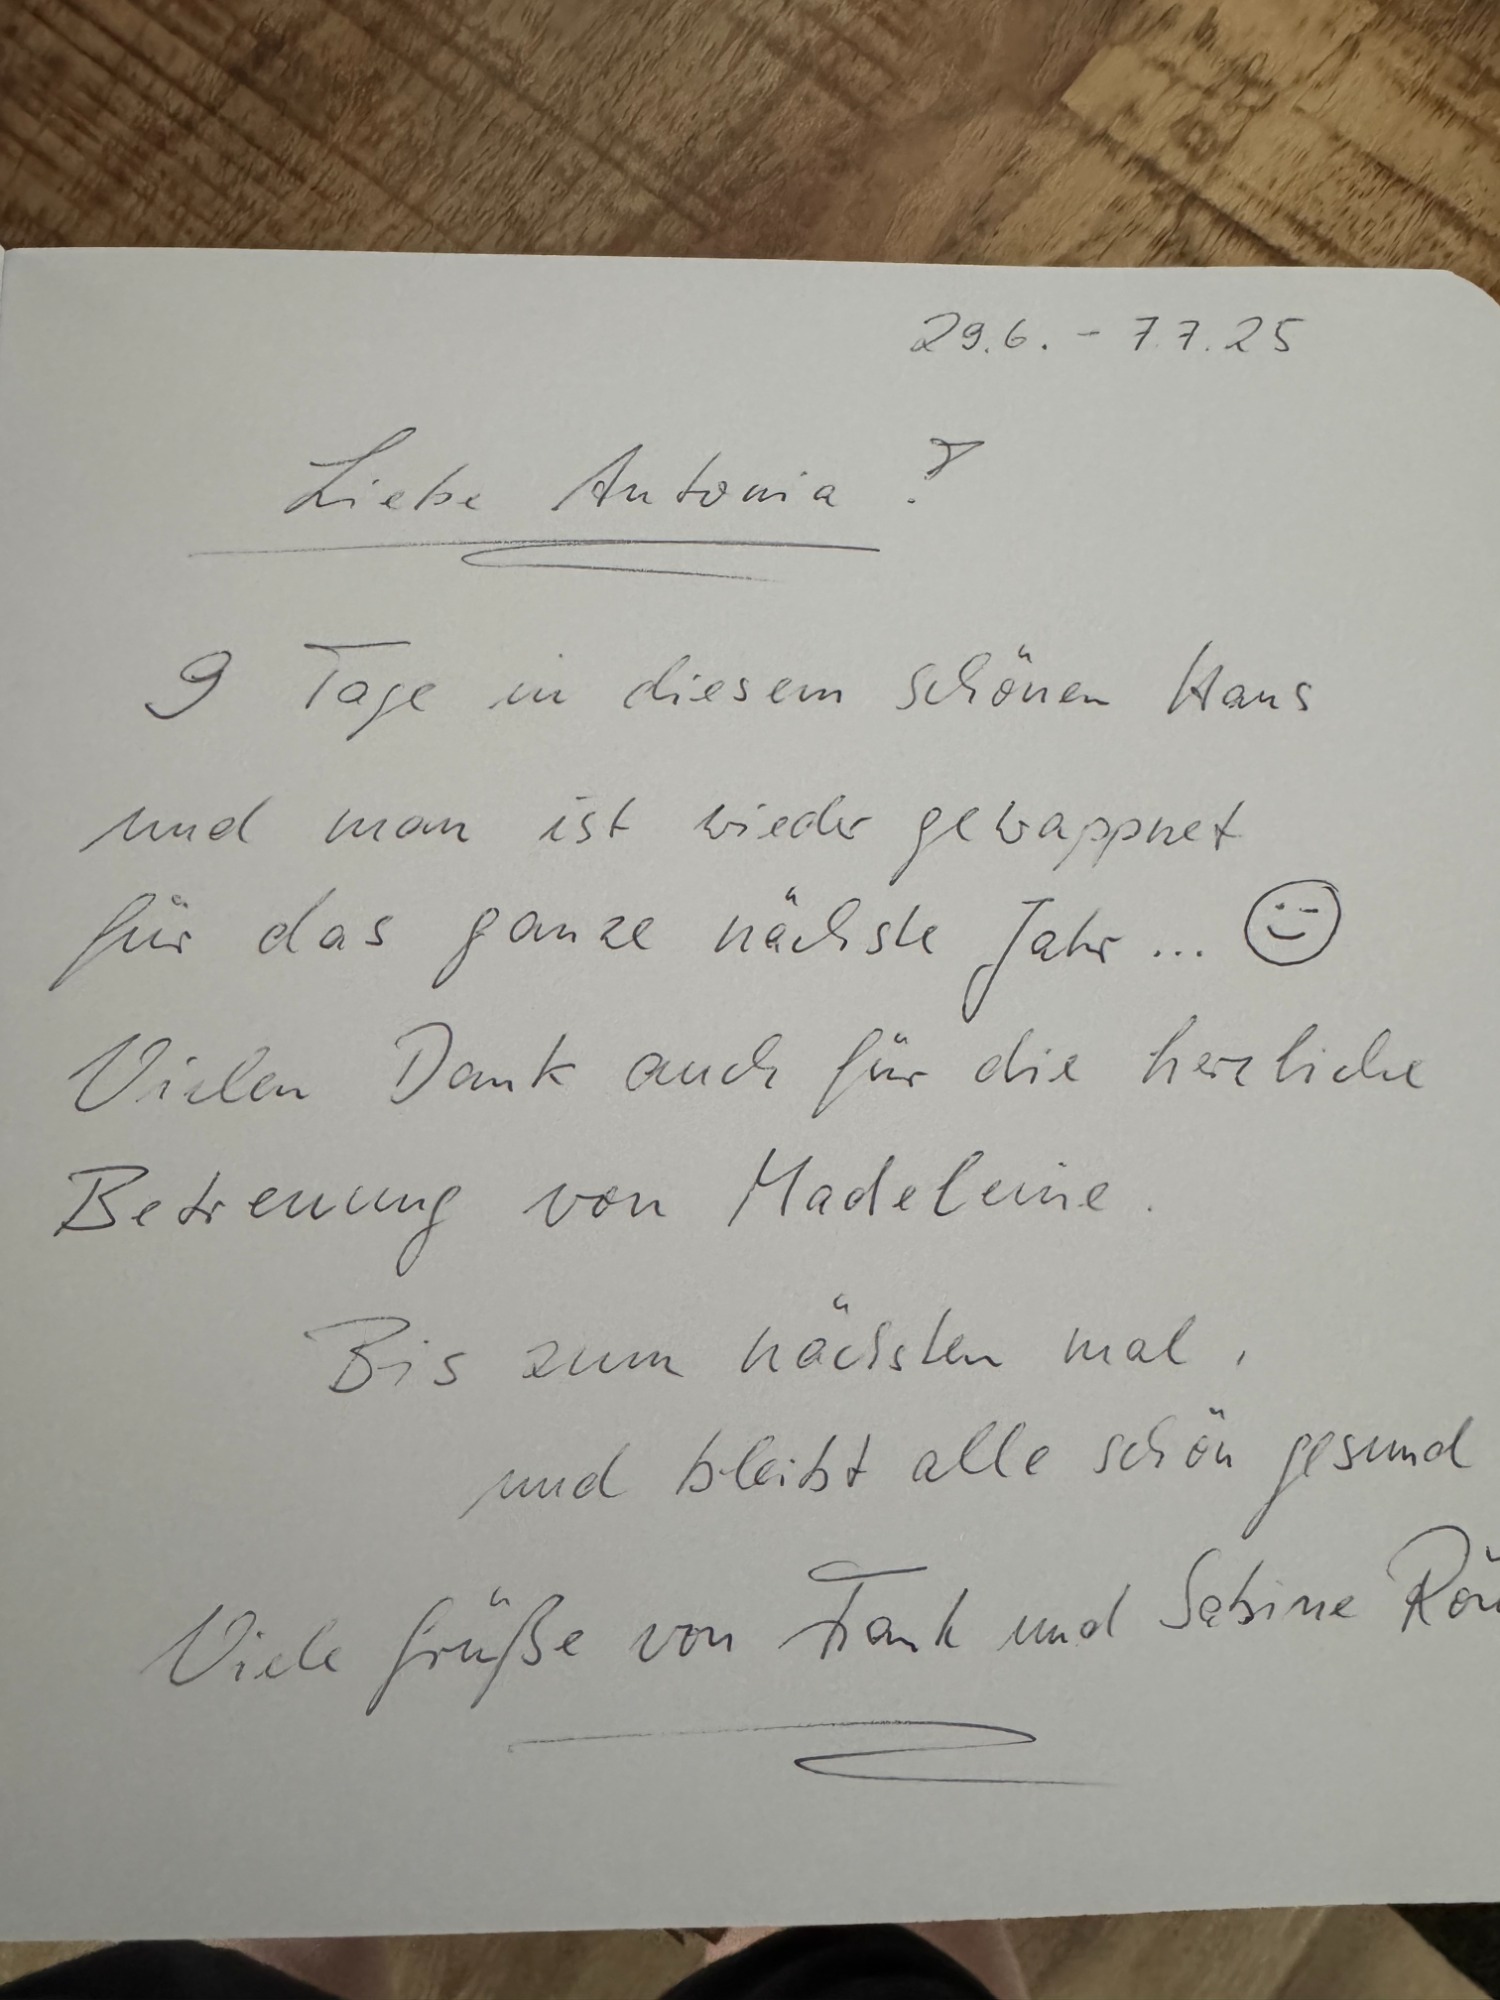 29.6. - 7.7.25
Liebe Antonia !
9 Tage in diesem schönen Haus
und man ist wieder gewappnet
für das ganze nächste Jahr...
Vielen Dank auch für die herzliche
Betreuung von Madeleine.
Bis zum nächsten mal,
und bleibt alle schön gesund
Viele Grüße von Frank und Sabine